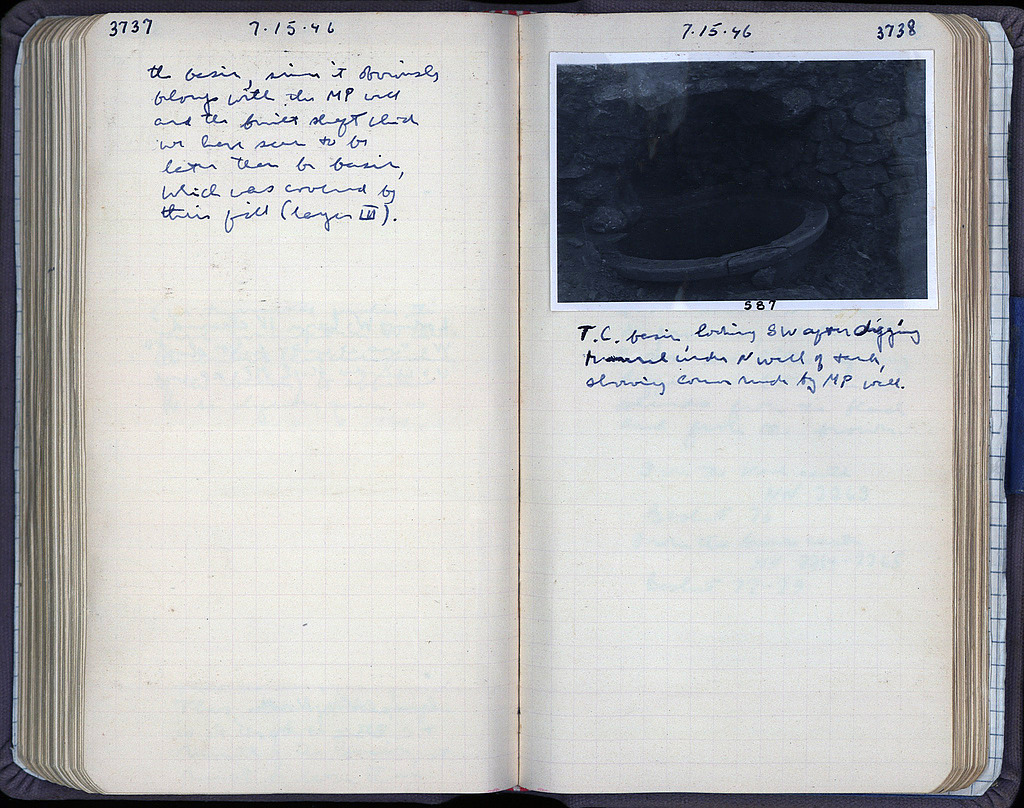 3737
7·15·46
the basin, since it obviously
belongs with the MP well
and the built shaft which
we have seen to be
later than the basin,
which was covered by
their fill (layer III).
7·15·46
3738
587
T.C. basin looking SW after digging
tunnel under N wall of tank,
showing cover made by MP well.